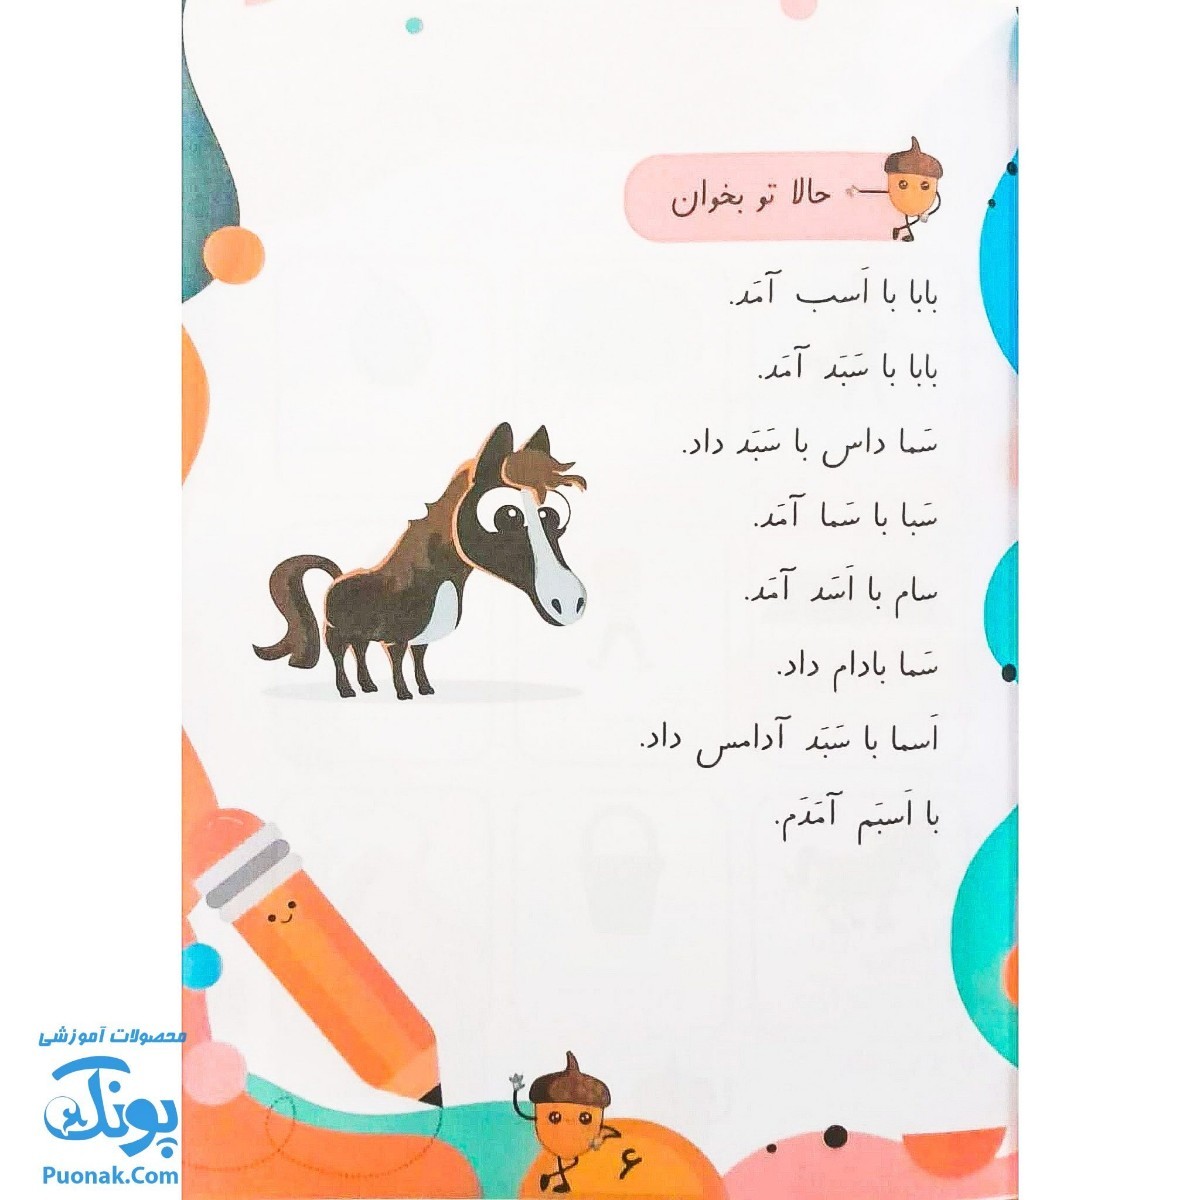 حالا تو بخوان
بابا با اَسب آمَد.
بابا با سَبَد آمَد.
سَما داس با سَبَد داد.
سَبا با سَما آمَد.
سام با اَسَد آمَد.
سَما بادام داد.
اَسما با سَبَد آدامس داد.
با اَسبَم آمَدَم.
۶
محصولات آموزشی
پونک
Puonak.Com